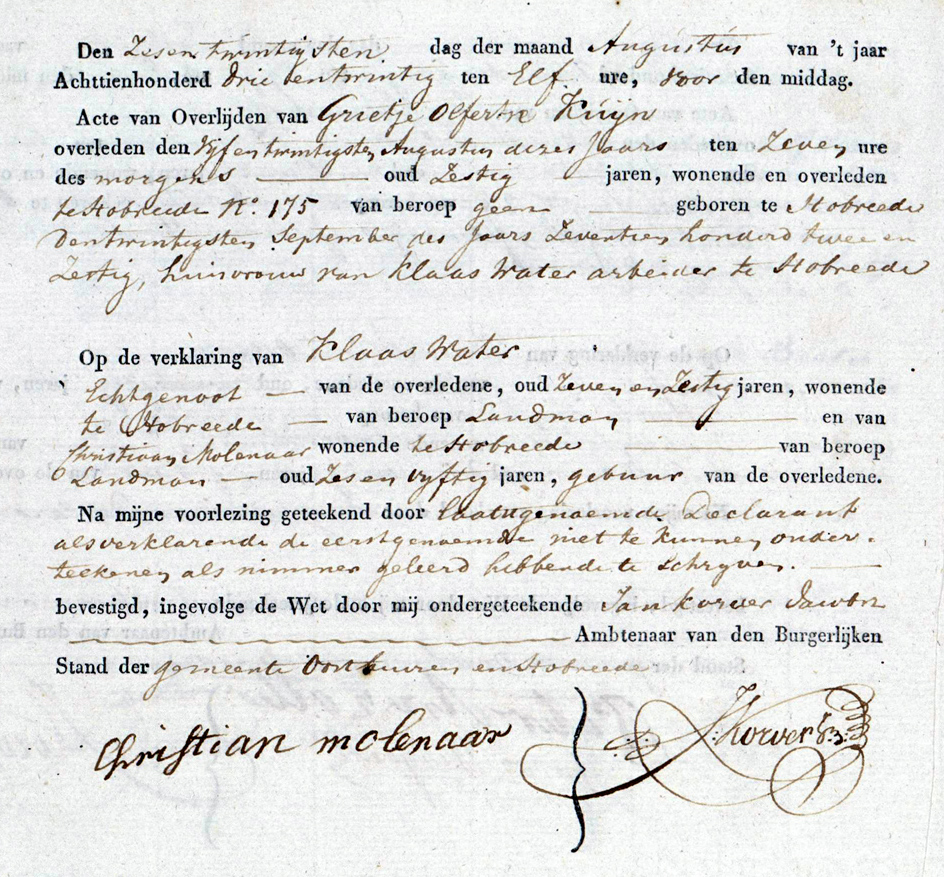 Den Zesentwintigsten dag der maand Augustus van 't jaar
Achttienhonderd drie entwintig ten Elf ure, voor den middag.
Acte van Overlijden van Grietje Olferts Kuijn
overleden den Vijfentwintigsten Augustus dezes Jaars ten Zeven ure
des morgens oud Zestig jaren, wonende en overleden
te Hobreede No. 175 van beroep geen geboren te Hobreede
Dentwintigsten September des Jaars Zeventien honderd twee en
Zestig, huisvrouw van Klaas Water arbeider te Hobreede
Op de verklaring van Klaas Water
Echtgenoot van de overledene, oud Zeven en Zestig jaren, wonende
te Hobreede van beroep Landman en van
Christiaan Molenaar wonende te Hobreede van beroep
Landman oud Zesen vyftig jaren, gebuur van de overledene.
Na mijne voorlezing geteekend door laatstgenoemde Declarant
als verklarende de eerstgenoemde niet te kunnen onder-
teekenen als nimmer geleerd hebbende te schryven.
bevestigd, ingevolge de Wet door mij ondergeteekende Jan Korver
Ambtenaar van den Burgerlijken
Stand der gemeente Oosthuizen en Hobreede
Christian molenaar
J Korver